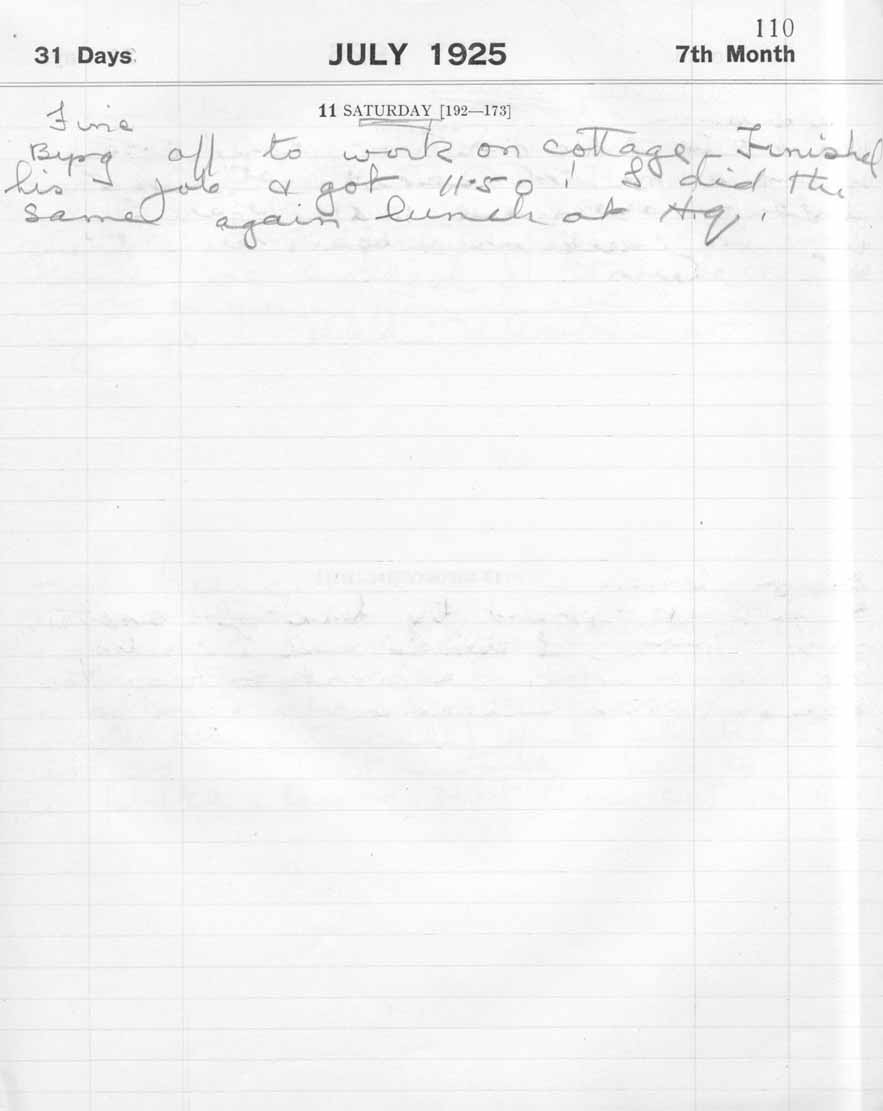 110
31 Days JULY 1925 7th Month
11 SATURDAY [192—173]
Fine
off to work on cottage - Finished
his job & got 11.50! I did the
same again lunch at Hq.